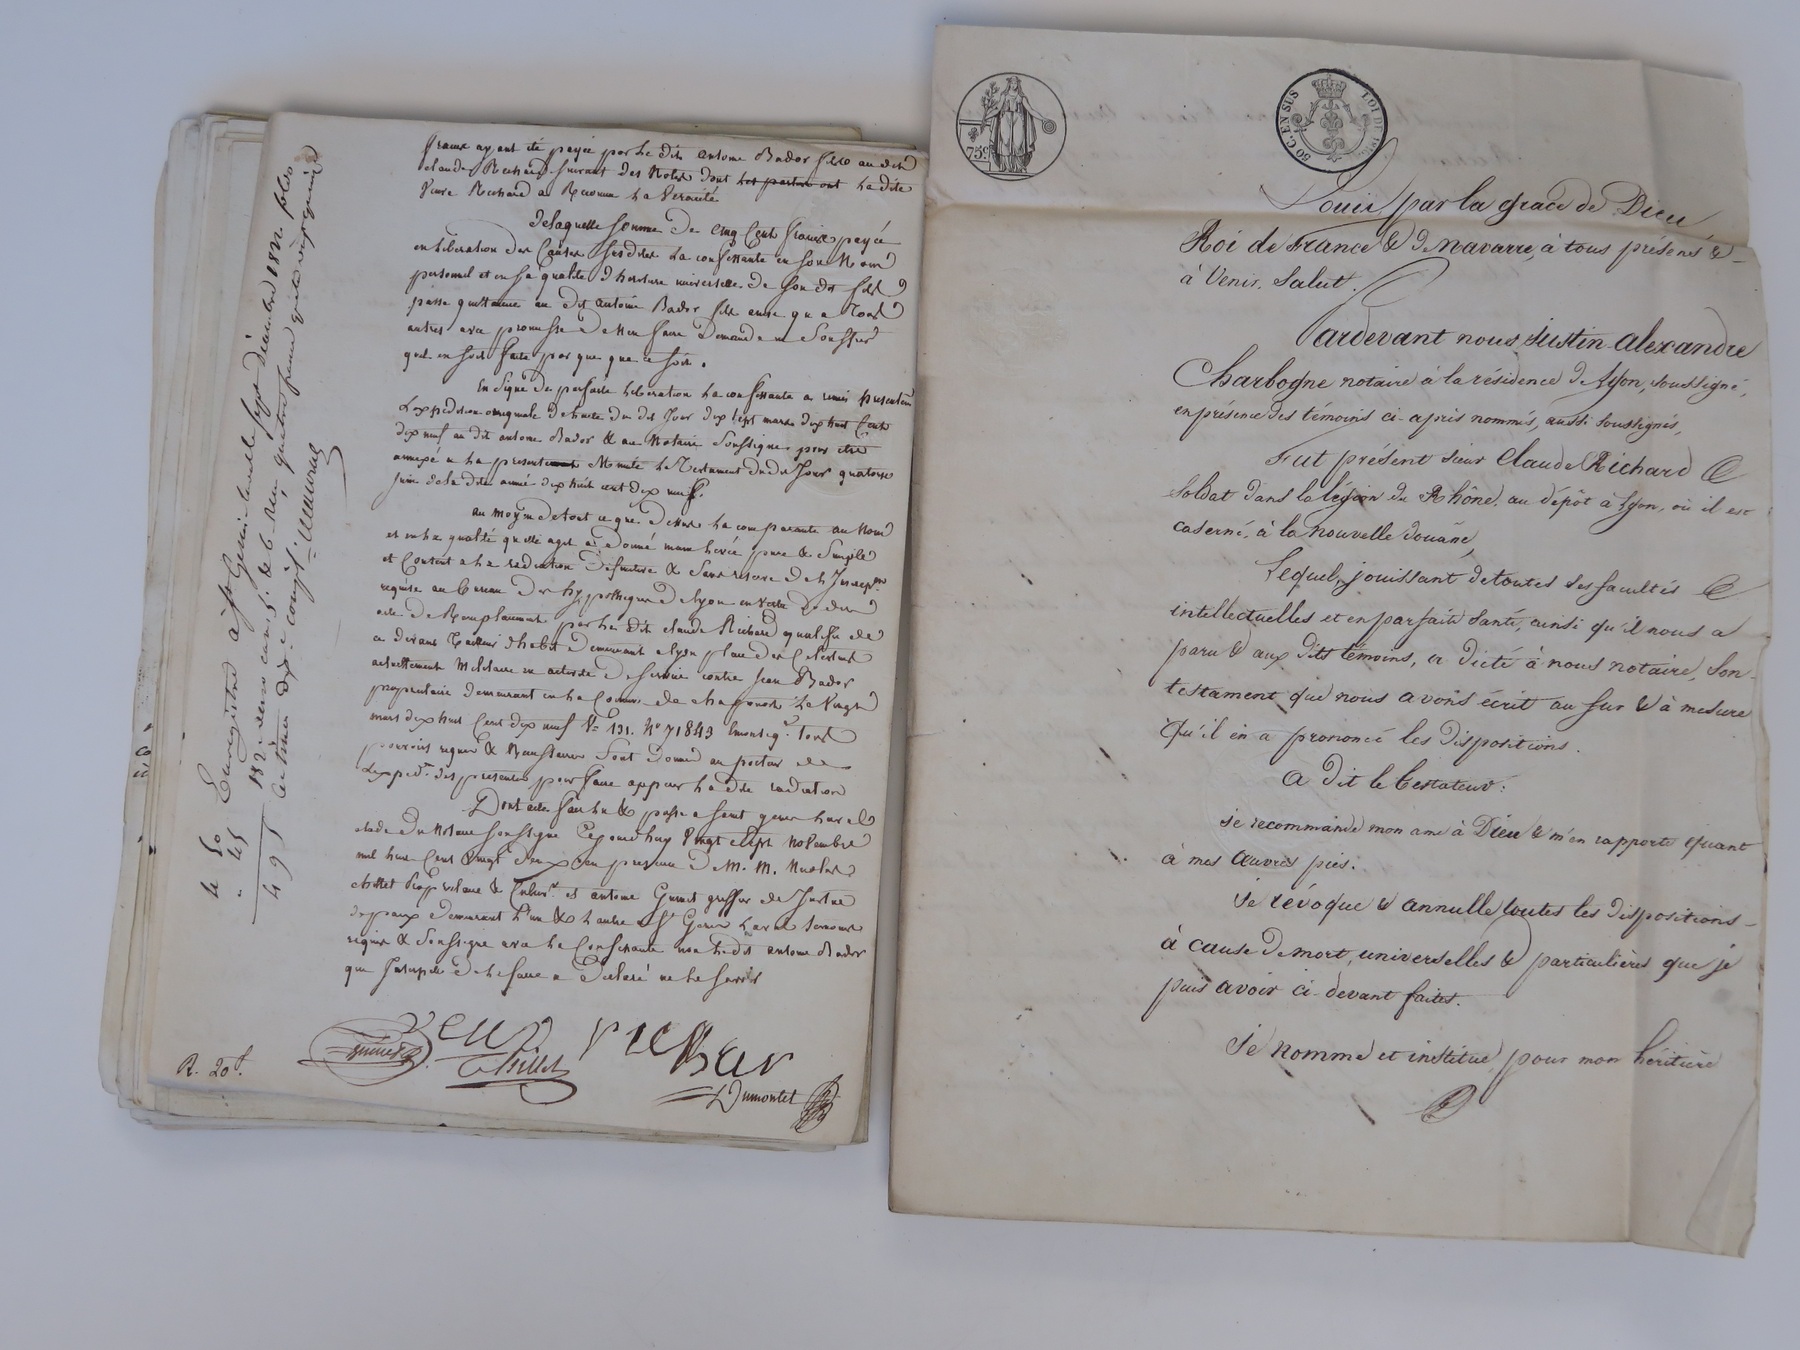 francs ayant été payée par le dit antoine Bador fils au dit
claude Richard suivant des Notes dont les parties ont la dite
Veuve Richard a Reconnu la Veracité
de laquelle somme de Cinq Cent francs payée
en liberation des Causes susdites la confessante en son Nom
personnel et en sa qualité d'heritiere universelle de son dit fils
passe quittance au dit antoine Bador fils ainsi qu'a Tous
autres avec promesse de n'en faire demande ni Souffrir
qu'il en soit faite par qui que ce soit.
En Signe de parfaite liberation la confessante a remis presentement
L'expedition originale du dit Jour dix sept mars dix huit Cent
dix neuf au dit antoine Bador & au Notaire Soussigné pour etre
annexé a la presente Minute le Testament du dit Jour quatorze
juin de la dite année dix huit cent dix neuf.
au moyen de tout ce que dessus la comparante au Nom
et en la qualité qu'elle agit a donné main levée pure & Simple
et Consent a la radiation definitive & Sans reserve de l'Inscrip.on
requise au bureau des hypotheques de Lyon en vertu du dit
acte de Remplacement par le dit claude Richard qualifié de
ci devant Tailleur d'habit demeurant a Lyon place des Celestins
actuellement Militaire en activité de service contre Jean Bador
proprietaire demeurant en la Commune de chaponost Le Vingt
mars dix huit Cent dix neuf Vol. 131. No 71843 Tout
pouvoirs requis & Sont donnés au porteur de
L'exped.on des presentes pour faire operer la dite radiation
Dont acte fait lu & passé a Saint genis laval
etude du Notaire soussigné Cejourd'huy Vingt Sept Novembre
mil huit Cent Vingt deux en presence de M. M. Nicolas
chillet Proprietaire & et antoine Guinet greffier de Justice
de paix demeurant l'un & l'autre a St Genis Laval temoins
requis & Soussignés avec la Confessante non le dit antoine Bador
qui Interpellé de le faire a Declaré ne le Savoir
Veuv richar
Guinet
Chillet
Dumontet
R. 20f.
4 50
" 45
4 95
Enregistré a St Genis Laval le Sept Décembre 1822. folio
182. verso cases 5. & 6. Reçu quatre francs quatre vingt quinze
centimes dix.e compt.
75c
50 C. EN SUS
LOI DE
Louis par la grace de Dieu
Roi de France & de Navarre, à tous présens &
à Venir, Salut.
Pardevant nous Justin-Alexandre
Charbogne notaire à la résidence de Lyon, soussigné,
en présence des témoins ci-après nommés, aussi soussignés,
Fut présent sieur Claude Richard
Soldat dans la légion du Rhône, au dépôt à Lyon, où il est
caserné, à la nouvelle douane,
Lequel, jouissant de toutes ses facultés
intellectuelles et en parfaite santé, ainsi qu'il nous a
paru & aux dits témoins, a dicté à nous notaire, Son
testament que nous avons écrit au fur & à mesure
Qu'il en a prononcé les dispositions.
A dit le testateur:
Je recommande mon ame à Dieu & m'en rapporte quant
à mes œuvres pies.
Je révoque & annulle toutes les dispositions
à cause de mort, universelles & particulières que je
puis avoir ci-devant faites.
Je nomme et institue, pour mon héritière